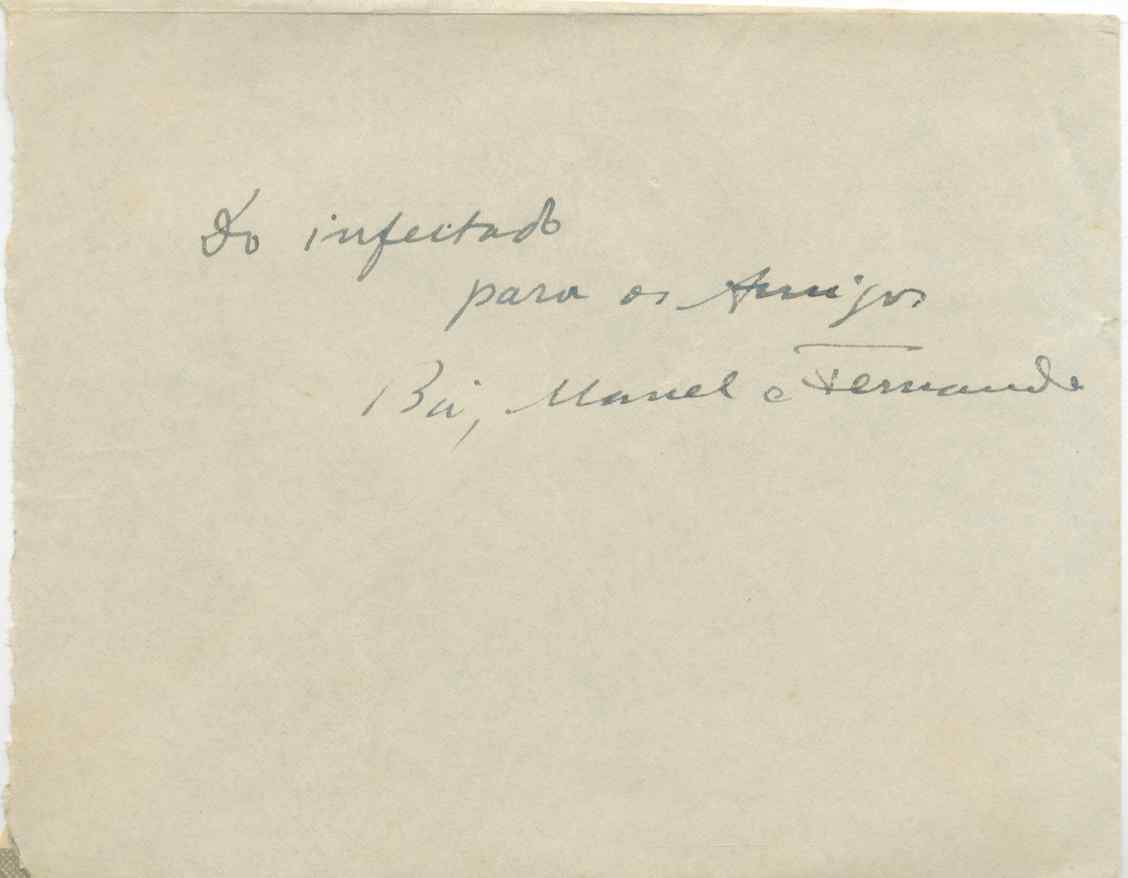 Do infectado
para os Amigos
Bá, Manel e Fernando